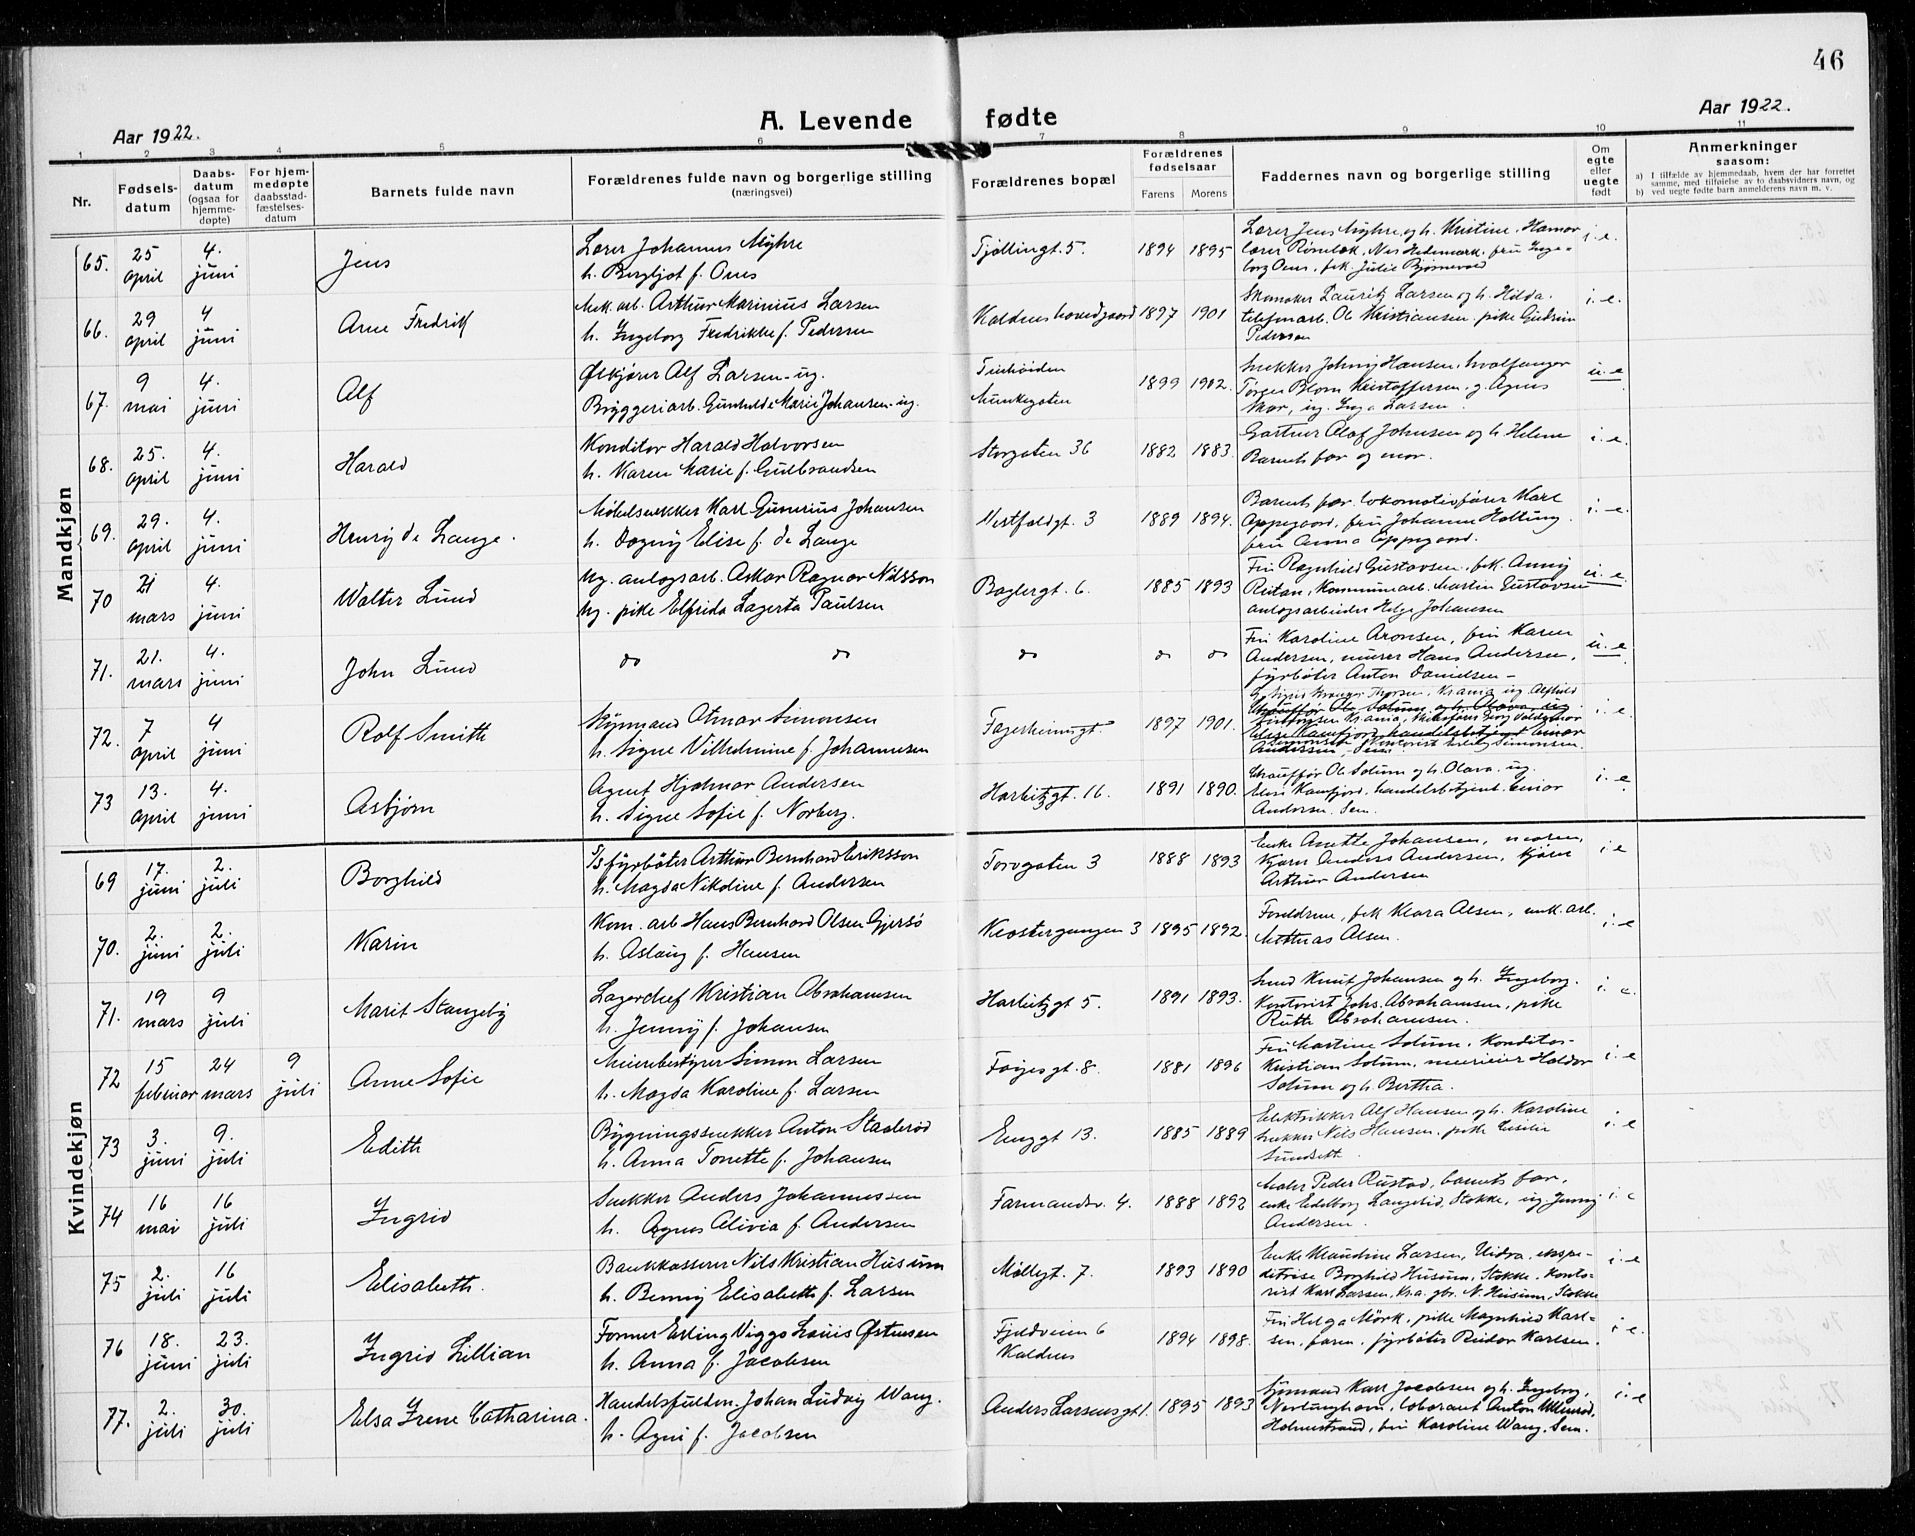 46
Aar 1922.
A. Levende fødte
Aar 1922.
1 2 3 4 5 6 7 8 9 10 11
Nr.
Fødsels-
datum
Daabs-
datum
(ogsaa for
hjemme-
døpte)
For hjem-
medøpte
daabsstad-
fæstelses-
datum
Barnets fulde navn
Forældrenes fulde navn og borgerlige stilling
(næringsvei)
Forældrenes bopæl
Forældrenes
fødselsaar
Farens Morens
Faddernes navn og borgerlige stilling
Om
egte
eller
uegte
født
Anmerkninger
saasom:
a) I tilfælde av hjemmedaab, hvem der har forrettet
samme, med tilføielse av to daabsvidners navn, og
b) ved uegte fødte barn anmelderens navn m. v.
Mandkjøn
65. 25 april 4. juni Jens
Lærer Johannes Myhre
h. Bergljot f. Oens
Tjøllingt. 5. 1894 1895
Lærer Jens Myhre og h. Kristine, Hamar
i. e.
66. 29 april 4 juni Arne Fredrik
Mek. arb. Arthur Marinius Larsen
h. Ingeborg Fredrikke f. Pedersen
Kaldnes hovedgaard 1897 1901
Skomaker Lauritz Larsen og h. Hilda.
telefonarb. Ole Kristiansen. pike Gudrun
Pedersen
i. e.
67. 9 mai 4. juni Alf
Ølkjører Alf Larsen ug.
Bryggeriarb. Gunhilde Marie Johansen ug.
Munkegaten 1899 1902.
Snekker Johnny Hansen, hvalfanger
Tørger Blom Kristoffersen, g. Agnes
Moe, ug. Inga Larsen.
u. e
68. 25. april 4. juni Harald
Konditor Harald Halvorsen
h. Karen Marie f. Gulbrandsen
Storgaten 36 1882 1883.
Gartner Olaf Johnsen og h. Helene
Barnets far og mor.
i. e.
69. 29. april 4. juni Henry de Lange.
Møbelsnekker Karl Gunerius Johansen
h. Dagny Elise f. de Lange
Vestfoldgt. 3 1889 1894.
Barnets far. lokomotivfører Karl
Oppegaard, fru Johanne Holtung.
fru Anna Oppegaard.
i. e.
70 21 mars 4. juni Walter Lund
Ug. anlogsarb. Askar Ragnar Nilsson
Ug. pike Elfrida Lagerta Paulsen
Baglergt. 6. 1885 1893
Fru Ragnhild Gustavsen, frk. Anny
Rutan, Kommunearb. Martin Gustavsen
anlogsarbeider Helge Johansen
u. e.
71. 21. mars 4. juni John Lund
do do do do do
Fru Karoline Aronsen, fru Karen
Andersen, murer Hans Andersen,
fyrbøter Anton Danielsen -
u. e
72. 7 april 4 juni Rolf Smith
Sjømand Otmar Simonsen
h. Signe Vilhelmine f. Johannesen
Fagerheimgt. 1897 1901.
i. e.
73 13. april 4. juni Asbjørn
Agent Hjalmar Andersen
h. Signe Sofie f. Norberg.
Harbitzgt. 16. 1891 1890.
Chauffør Ole Solum og h. Olava. ug.
Elise Kamfjord, handelsbetjent Einar
Andersen, Sem.
i. e.
Kvindekjøn
69 17. juni 2. juli Borghild
S/s fyrbøter Arthur Bernhard Eriksson
h. Magda Nikoline f. Andersen
Torvgaten 3 1888 1893
Enke Anette Johansen, moren,
Bjarn Anders Andersen, kjøer
Arthur Andersen
i e
70. 2. juni 2. juli Karin
Kom. arb Hans Bernhard Olsen Gjersø
h. Aslaug f. Hansen
Klostergangen 3 1895 1892.
Foreldrene, frk Klara Olsen, mek. arb.
Mathias Olsen.
i. e
71. 19 mars 9 juli Marit Stangeby
Lagerchef Kristian Abrahamsen
h. Jenny f. Johansen
Harbitzgt 5. 1891 1893.
Smed Knut Johansen og h. Ingeborg.
Kontorist Johs. Abrahamsen, pike
Ruth Abrahamsen.
i. e.
72 15 februar 24 mars 9 juli Anne Sofie
Meieribestyrer Simon Larsen
h. Magda Karoline f. Larsen
Føyesgt. 8. 1881 1896
Fru Martine Solum, Konditor
Kristian Solum, meierier Haldor
Solum og h. Bertha.
i. e
73 3. juni 9. juli Edith
Bygningssnekker Anton Staalerød
h. Anna Tonette f. Johansen
Enggt 13. 1885 1889
Elektrikker Alf Hansen og h. Karoline
Snekker Nils Hansen, pike Cecilie
Sundseth.
i. e
74 16 mai 16 juli Ingrid
Snekker Anders Johannessen
h. Agnes Alivia f. Andersen
Farmandsv. 4. 1888 1892
Maler Peder Rustad, barnets far,
enke Edelborg Langelid, Stokke, ug. Jenny
Andersen.
i. e
75 2. juli 16 juli Elisabeth.
Bankkasserer Nils Kristian Husum
h. Benny Elisabeth f. Larsen
Møllegt. 7. 1893 1890
Enke Klaudine Larsen, Hidra, ekspe-
ditrise Borghild Husum, Stokke. Konto-
rist Karl Larsen, Kr.a. gbr. N. Husum, Stokke
i. e
76 18. juni 23. juli Ingrid Lillian
Former Erling Viggo Louis Østensen
h. Anna f. Jacobsen
Fjeldveien 6
Kaldnes 1894 1898.
Fru Helga Mørk, pike Magnhild Karl-
sen, faren, fyrbøter Reidar Karlsen.
i. e.
77. 2. juli 30. juli Elsa Irene Catharina.
Handelsfuldm. Johan Ludvig Wang.
h. Agni f. Jacobsen
Anders Larsensgt 1. 1895 1893
Sjømand Karl Jacobsen og h. Ingeborg,
Nøtlunghavn, laborant Anton Ullerød,
Holmestrand, fru Karoline Wang, Sem.
i. e